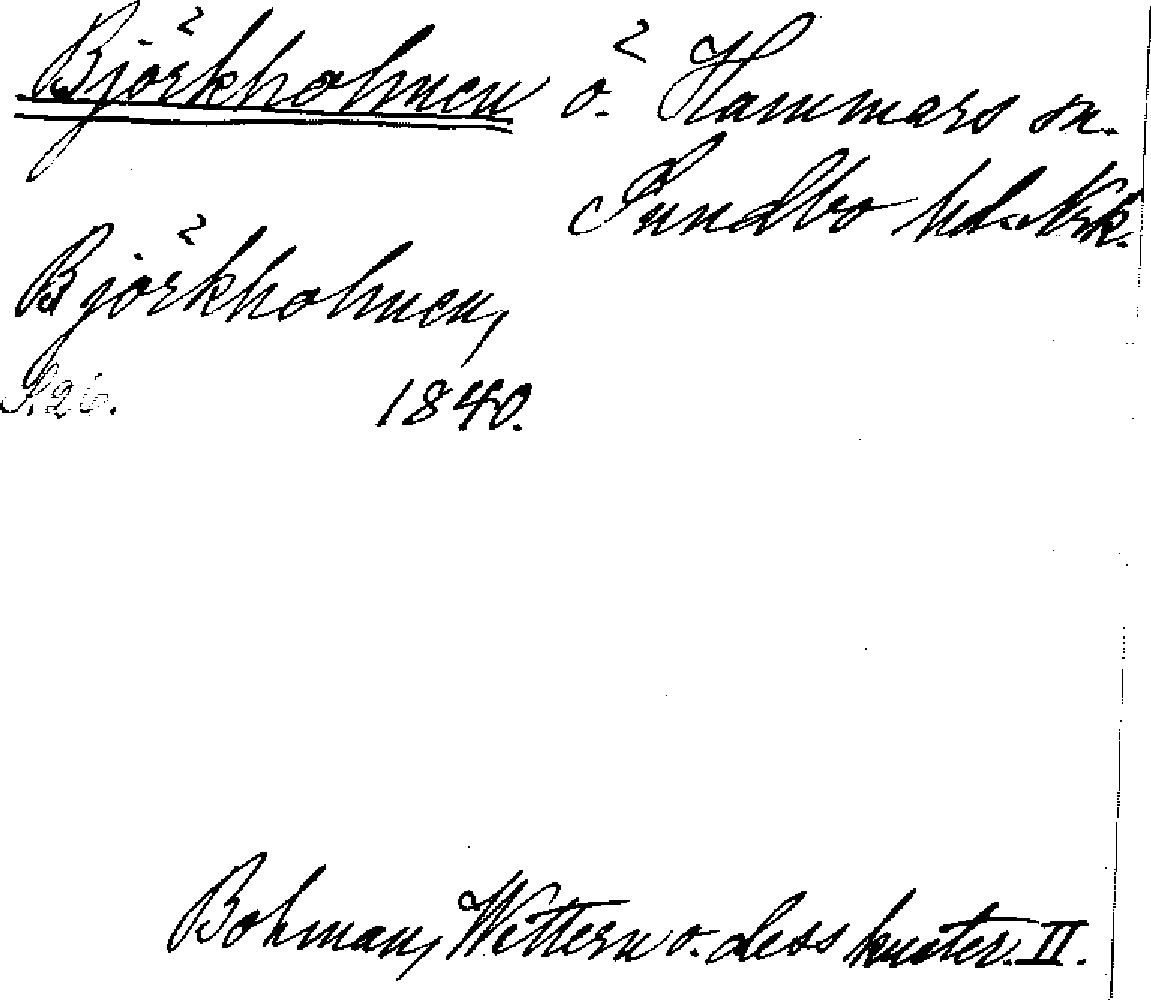 Björkholmen ö. Hammars sn.
Sundbo hd. Nrk.
Björkholmen,
S. 26. 1840.
Bohman, Wettern o. dess kuster. II.